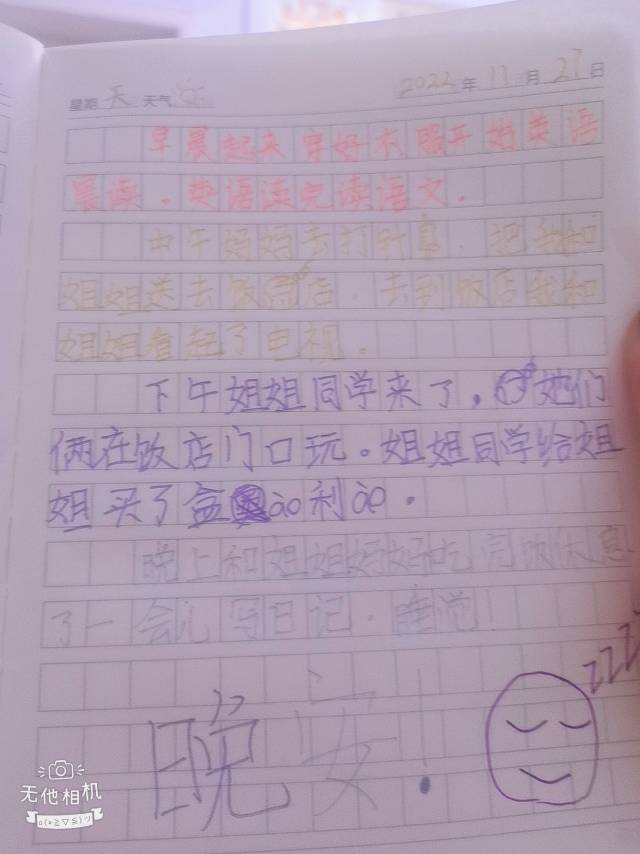 星期 天 天气
2022年11月27日
早晨起来穿好衣服开始英语
晨读.英语读完读语文.
中午妈妈去打针息.把我和
姐姐送去饭店.去到饭店我和
姐姐看起了电视.
下午姐姐同学来了,她们
俩在饭店门口玩。姐姐同学给姐
姐买了盒ao利ao.
晚上和姐姐妈妈吃完饭休息
了一会儿写日记.睡觉!
zzzz
晚安!
无他相机